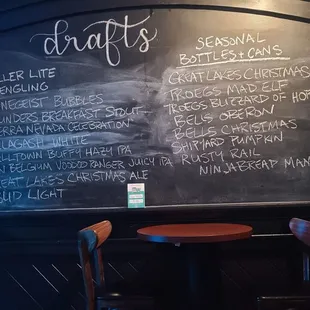 drafts
LLER LITE
ENGLING
NEGEIST BUBBLES
UNDERS BREAKFAST STOUT
ERRA NEVADA CELEBRATION
LAGASH WHITE
LLTOWN BUFFY HAZY IPA
W BELGUM VOODOO RANGER JUICY IPA
EAT LAKES CHRISTMAS ALE
UD LIGHT
SEASONAL
BOTTLES + CANS
GREAT LAKES CHRISTMAS
TROEGS MAD ELF
TROEGS BLIZZARD OF HOP
BELLS OBERON
BELLS CHRISTMAS
SHIPYARD PUMPKIN
RUSTY RAIL
NINJABREAD MAN